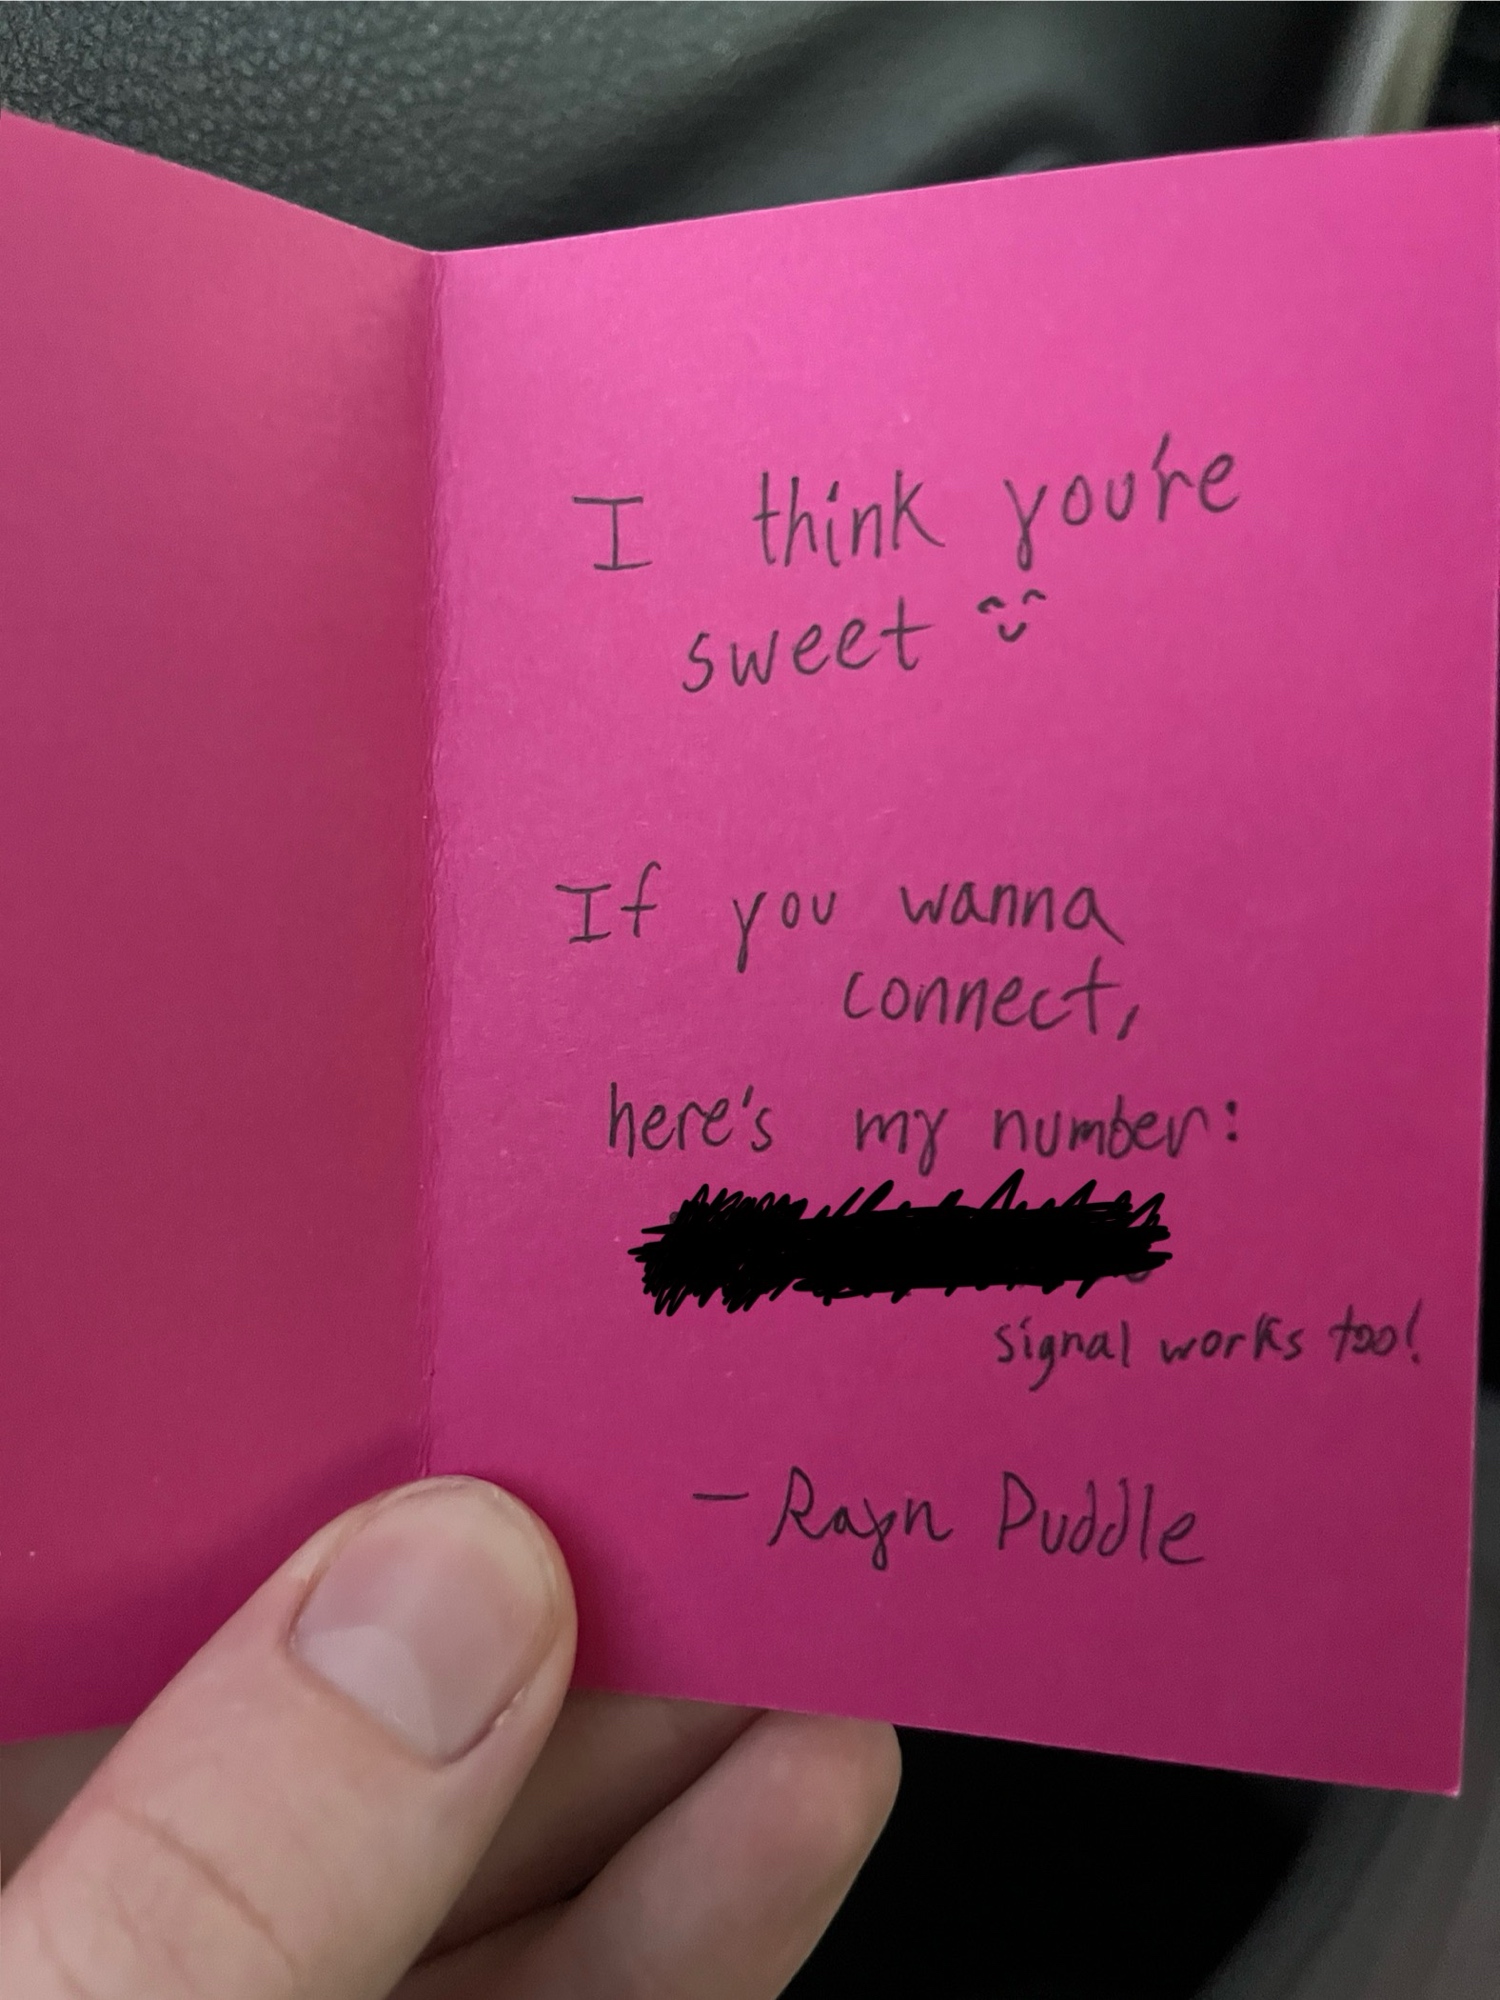 I think you're
sweet
If you wanna
connect,
here's my number:
signal works too!
— Rayn Puddle